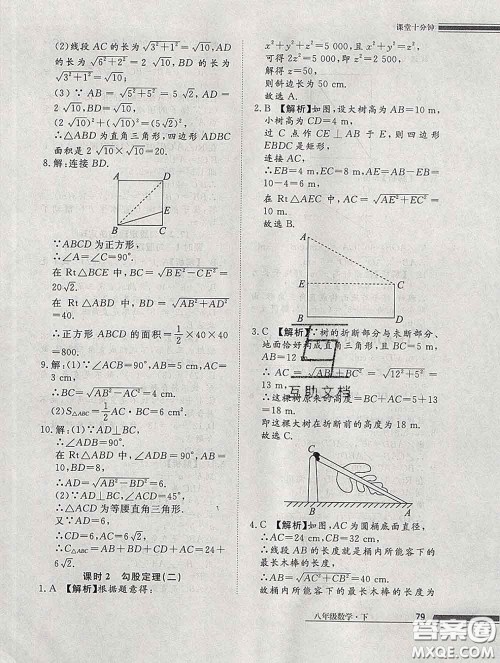 课堂十分钟
(2)线段 AC 的长为 √3²+1² = √10, AD
的长为 √3²+1² = √10.
(3) ∵ AB = √5²+5² = 5 √2, AD =
√10, BD=√10.
(2 √10)²+(√10)²=(5√2)²,
∴△ABD 为直角三角形,四边形 ADBC
面积是 2 √10×√10=20.
8.解:连接 BD.
A
D
E
B
C
∵ABCD 为正方形,
∴∠A=∠C=90°.
在 Rt△BCE 中,BC= √BE²−CE² =
20√2.
在 Rt△ABD 中,BD= √AB²+AD² =
40.
∴正方形 ABCD 的面积=1/2×40×40
=800.
9.解:(1)∵∠ACB=90°,AB=5 cm,AC=
3 cm,
∴BC= √AB²−AC² =4 cm.
(2)S△ABC=1/2AC·BC=6 cm².
10.解:(1)∵AD⊥BC,
∴∠ADB=90°.在 Rt△ADB 中,AB=
10,BD=8,
∴AD= √AB²−BD² =6.
(2)∵AD⊥BC,∠ACD=45°,
∴△ACD 为等腰直角三角形.
又∵AD=6,
∴CD=6,AC=6 √2.
∴C△ACD=AD+CD+AC=24+
6 √2.
课时 2 勾股定理(二)
1.A 【解析】根据题意得:
x²+y²+z²=5 000,x²+y²=z²,
可得 2z²=5 000,即 z²=2 500,
解得 z=50,
则斜边长为 50 cm.
故选 A.
2.B 【解析】如图,设大树高为 AB=10 m,
小树高为 CD=4 m,
过 C 点作 CE⊥AB 于 E,则四边形
EBDC 是矩形.
连接 AC,
∴EB=4 m,EC=8 m,AE=AB−EB
=6 m.
在 Rt△AEC 中,AC= √AE²+EC² =
10 m.
故选 B.
A
E
C
B
D
3.C 【解析】∵树的折断部分与未断部分、
地面恰好构成直角三角形,且 BC=5 m,
AB=12 m,
∴AC= √AB²+BC² = √12²+5² =
13 m,
∴这棵树原来的高度=BC+AC=5+
13=18 m.
即这棵大树在折断前的高度为 18 m.
故选 C.
互助文档
C
B
A
4.C 【解析】如图,AC 为圆桶底面直径,
∴AC=24 cm,CB=32 cm,
∴线段 AB 的长度就是桶内所能容下的
最长木棒的长度,
∴AB= √AC²+CB² =40 cm.
故桶内所能容下的最长木棒的长度为
八年级数学·下
79
答案圈
MXQE.COM